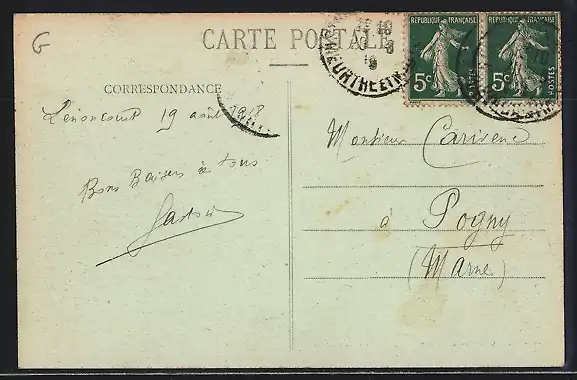 G
CARTE POSTALE
RÉPUBLIQUE FRANÇAISE
5c POSTES
RÉPUBLIQUE FRANÇAISE
5c POSTES
MEURTHE ET M
CORRESPONDANCE
Lenoncourt 19 août 1918
Bons Baisers à tous
Gaston
Monsieur Carivenc
à Pogny
(Marne)